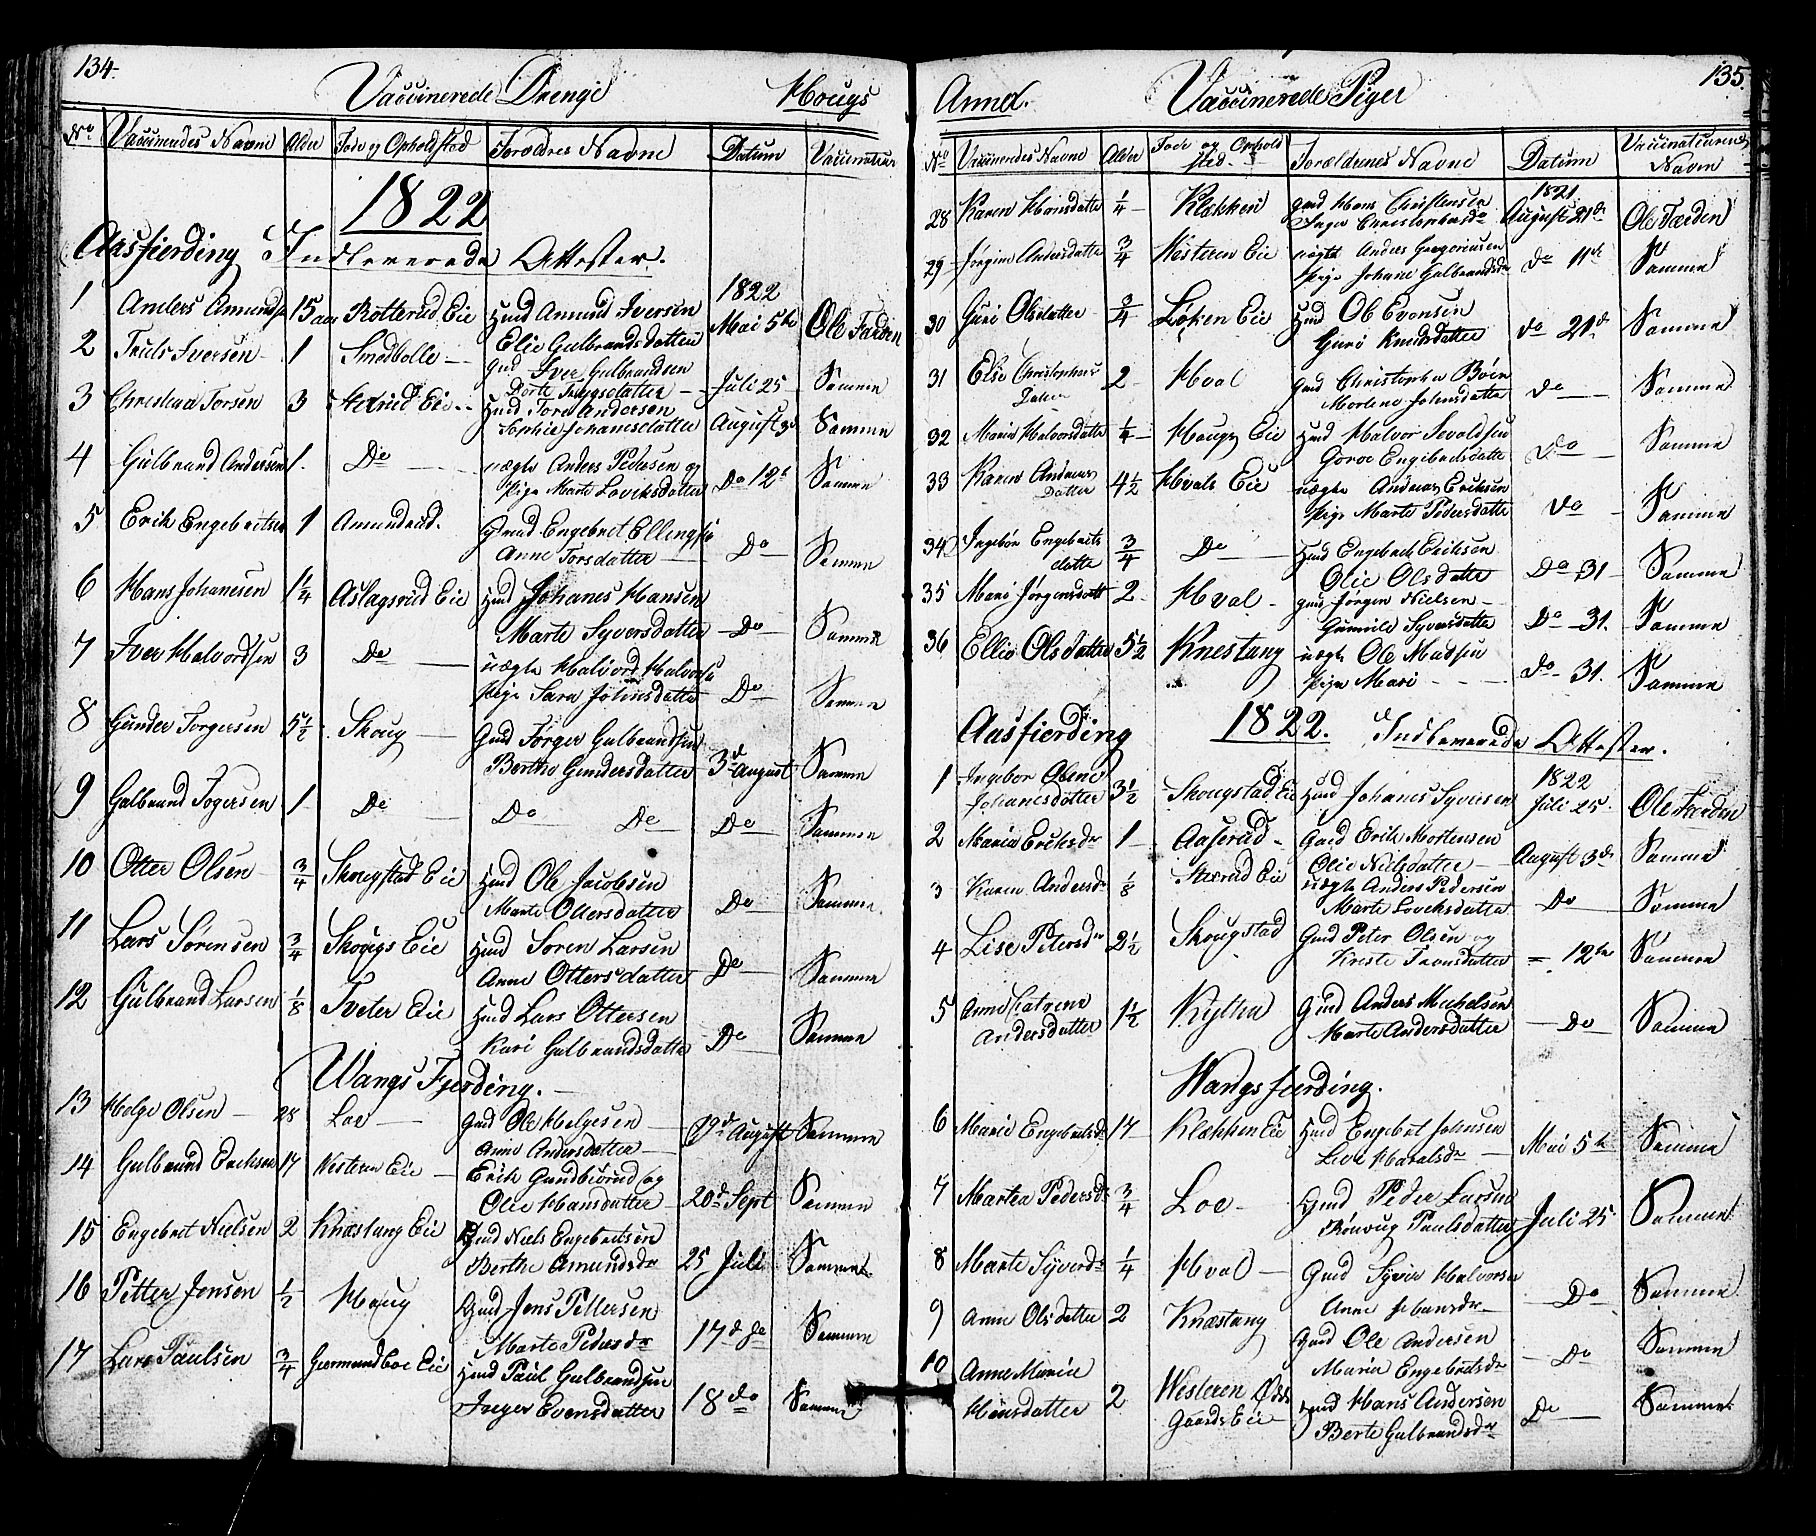 134.
Vaccinerede Drenge Hougs
No. Vaccineredes Navne Alder Føde og Opholdsted Forældres Navne Datum Vaccinateur
1822
Aasfjerding Indleverede Attester.
1 Anders Amunds 15 aar Rotterud Eie Hmd Amund Iversen 1822 Mai 5te Ole Færden
Elie Gulbrandsdatter
2 Truls Iversen 1 Smedbølle Gmd Iver Gulbrandsen
Dorte Trygsdatter Juli 25 Samme
3 Christian Torsen 3 Stixrud Eie Hmd Tore Andersen
Sophie Johannesdatter August 3d Samme
4 Gulbrand Andersen 1. Do uægte Anders Pedersen og
Pige Marte Loviksdatter Do 12te Samme
5 Erik Engebretsen 1 Amundrud. Gmd Engebret Ellings
Anne Torsdatter Do Samme
6 Hans Johanesen 1 1/4 Aslagsrud Eie Hmd Johanes Hansen
Marte Syversdatter Do Samme
7 Iver Halvordsen 3 Do uægte Halvord Halvors
Pige Sara Johnsdatter Do Samme
8 Gunder Torgersen 5 1/2 Skoug Gmd Torger Gulbrandsen
Berthe Gundersdatter 3d August Samme
9 Gulbrand Togersen 1 Do Do Do Do Samme
10 Otter Olsen 3/4 Skougstad Eie Hmd Ole Jacobsen
Marte Ottersdatter Do Samme
11 Lars Sørensen 3/4 Skougs Eie Hmd Soren Larsen
Anne Ottersdatter Do Samme
12 Gulbrand Larsen 1/8 Tveter Eie Hmd Lars Ottersen
Kari Gulbrandsdatter Do Samme
Wangs Fjerding.
13 Helge Olsen 28 Loe Gmd Ole Helgesen
Anne Andersdatter 19d August Samme
14 Gulbrand Ericksen 17 Vesteren Eie Erik Gundbiørud og
Olie Hansdatter 20d Sept Samme
15 Engebret Nielsen 2 Knæstang Eie Hmd Niels Engebretsen
Berthe Amundsdr 25 Juli Samme
16 Petter Jensen 1/2 Houg Gmd Jens Pettersen
Marte Pedersdr 17d do Samme
17 Lars Paulsen 3/4 Giermundboe Eie Hmd Paul Gulbrandsen
Inger Evensdatter 18 do Samme
135.
Annex. Vaccinerede Piger
No Vaccineredes Navne Alder Føde og Ophold sted. Forældrenes Navne Datum Vaccinateurens Navn
28 Karen Hansdatte 1/4 Klækken gmd Hans Christensen
Inger Christophersdr 1821 August 21de Ole Færden
29 Jørgine Andersdatte 3/4 Vesteren Eie uægte Anders Gregoriusen
Pige Johane Gulbrandsdr do 11te Samme
30 Guri Olsdatter 3/4 Løken Eie Hmd Ole Evensen
Guri Knudsdatter do 21d Samme
31 Else Christophers
Datter 2 Hval gmd Christopher Boien
Morlene Johnsdatte do Samme
32 Maria Halvorsdatte 1/4 Hougs Eie Hmd Halvor Sevaldsen
Gorve Engebretsdatte do Samme
33 Karen Andreas
Datter 4 1/2 Hvals Eie uægte Andreas Eriksen
Pige Marte Pedersdatte do Samme
34 Ingebor Engebrets
datte 3/4 Do Hmd Engebret Ericksen
Olie Olsdatte Do 31 Samme
35 Mari Jørgensdatt 2 Hval gmd Jørgen Nielsen
Gunnile Syversdatte Do 31. Samme
36 Ellie Olsdatter 5 1/2 Knestang uægte Ole Madsen
Pige Mari do 31. Samme
Aasfierding 1822. Indleverede Attester.
1 Ingebor Olene
Johanesdatter 3 1/2 Skougstad Eie Hmd Johanes Syversen 1822 Juli 25 Ole Færden
2 Maria Eriksdr 1 Aaserud Gmd Erik Mortensen
Olie Nielsdatter August 3de Samme
3 Karen Andersdr 1/8 Stixrud Eie uægte Anders Pedersen
Marte Loviksdatter Do Samme
4 Lise Petersdr 2 1/2 Skougstad Gmd Peter Olsen og
Kirste Tronsdatter = 12te Samme
5 Anne Catrene
Andersdatter 1 1/2 Kjlhn Gmd Anders Mickelsen
Marte Andersdatter Do Samme
Wangsfierding.
6 Marie Engebretsdr 17 Klækken Eie Hmd Engebret Johnsen
Live Haralsdr Mai 5te Samme
7 Martea Pedersdr 3/4 Loe Gmd Peder Larsen
Rønvig Paulsdatter Juli 25 Samme
8 Marte Syversdr 1/4 Hval Gmd Syver Halvorsen
Anne Hansdr Do Samme
9 Anne Olsdatter 2 Knæstang Gmd Ole Andersen
Maria Engebretsdr Do Samme
10 Anne Marie
Hansdatter 2 Westeren Øde
Gaards Eie Hmd Hans Andersen
Berte Gulbrandsdr Do Samme